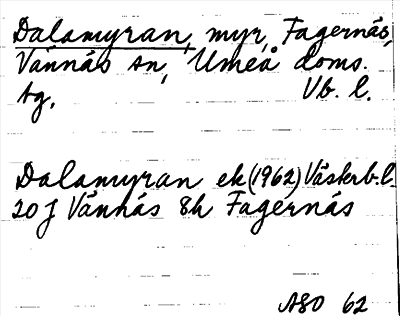 Dalamyran, myr, Fagernäs,
Vännäs sn, Umeå doms.
tg, Vb. l.
Dalamyran ek (1962) Västerb. l.
20 J Vännäs 8h Fagernäs
ASO 62